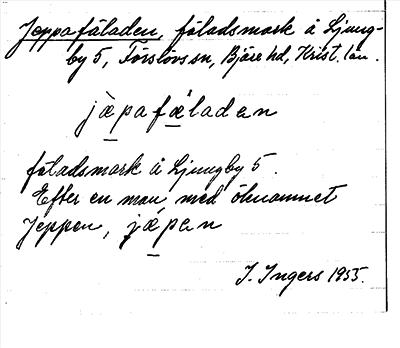 Jeppafäladen, fäladsmark å Ljung-
by 5, Förslövs sn, Bjäre hd, Krist. län.
jæpafæladen
fäladsmark å Ljungby 5.
Efter en man med öknamnet
Jeppen, jæpen
I. Ingers 1955.